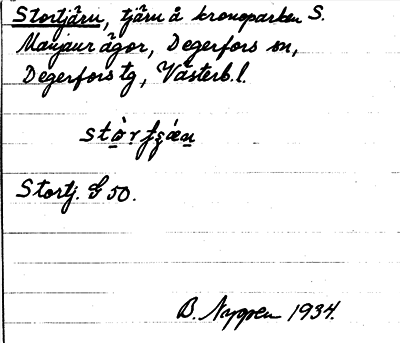 Stortjärn, tjärn å kronoparken S.
Manjaur ägor, Degerfors sn,
Degerfors tg, Västerb.l.
Stortj. G 50.
B. Nygren 1934.